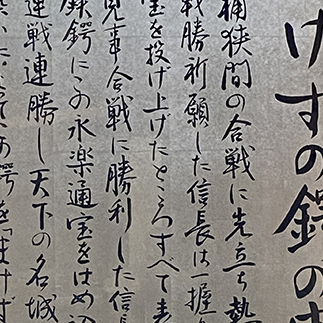 けすの鍔の
桶狭間の合戦に先立ち熱
戦勝祈願した信長は一握
宝を投げ上げたところすべて表
見事合戦に勝利した信長
鉄鍔にこの永楽通宝をはめ
連戦連勝し天下の名城
の鍔を「まけず